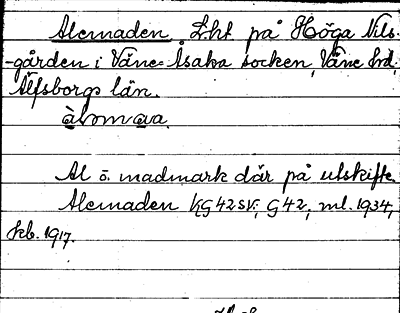 Alemaden Lht på Höga Nils-
-gården i Väne-Åsaka socken, Väne hd,
Älfsborgs län.
Al o. madmark där på utskifte.
Alemaden KG42sv; G42; ml. 1934,
kb. 1917.